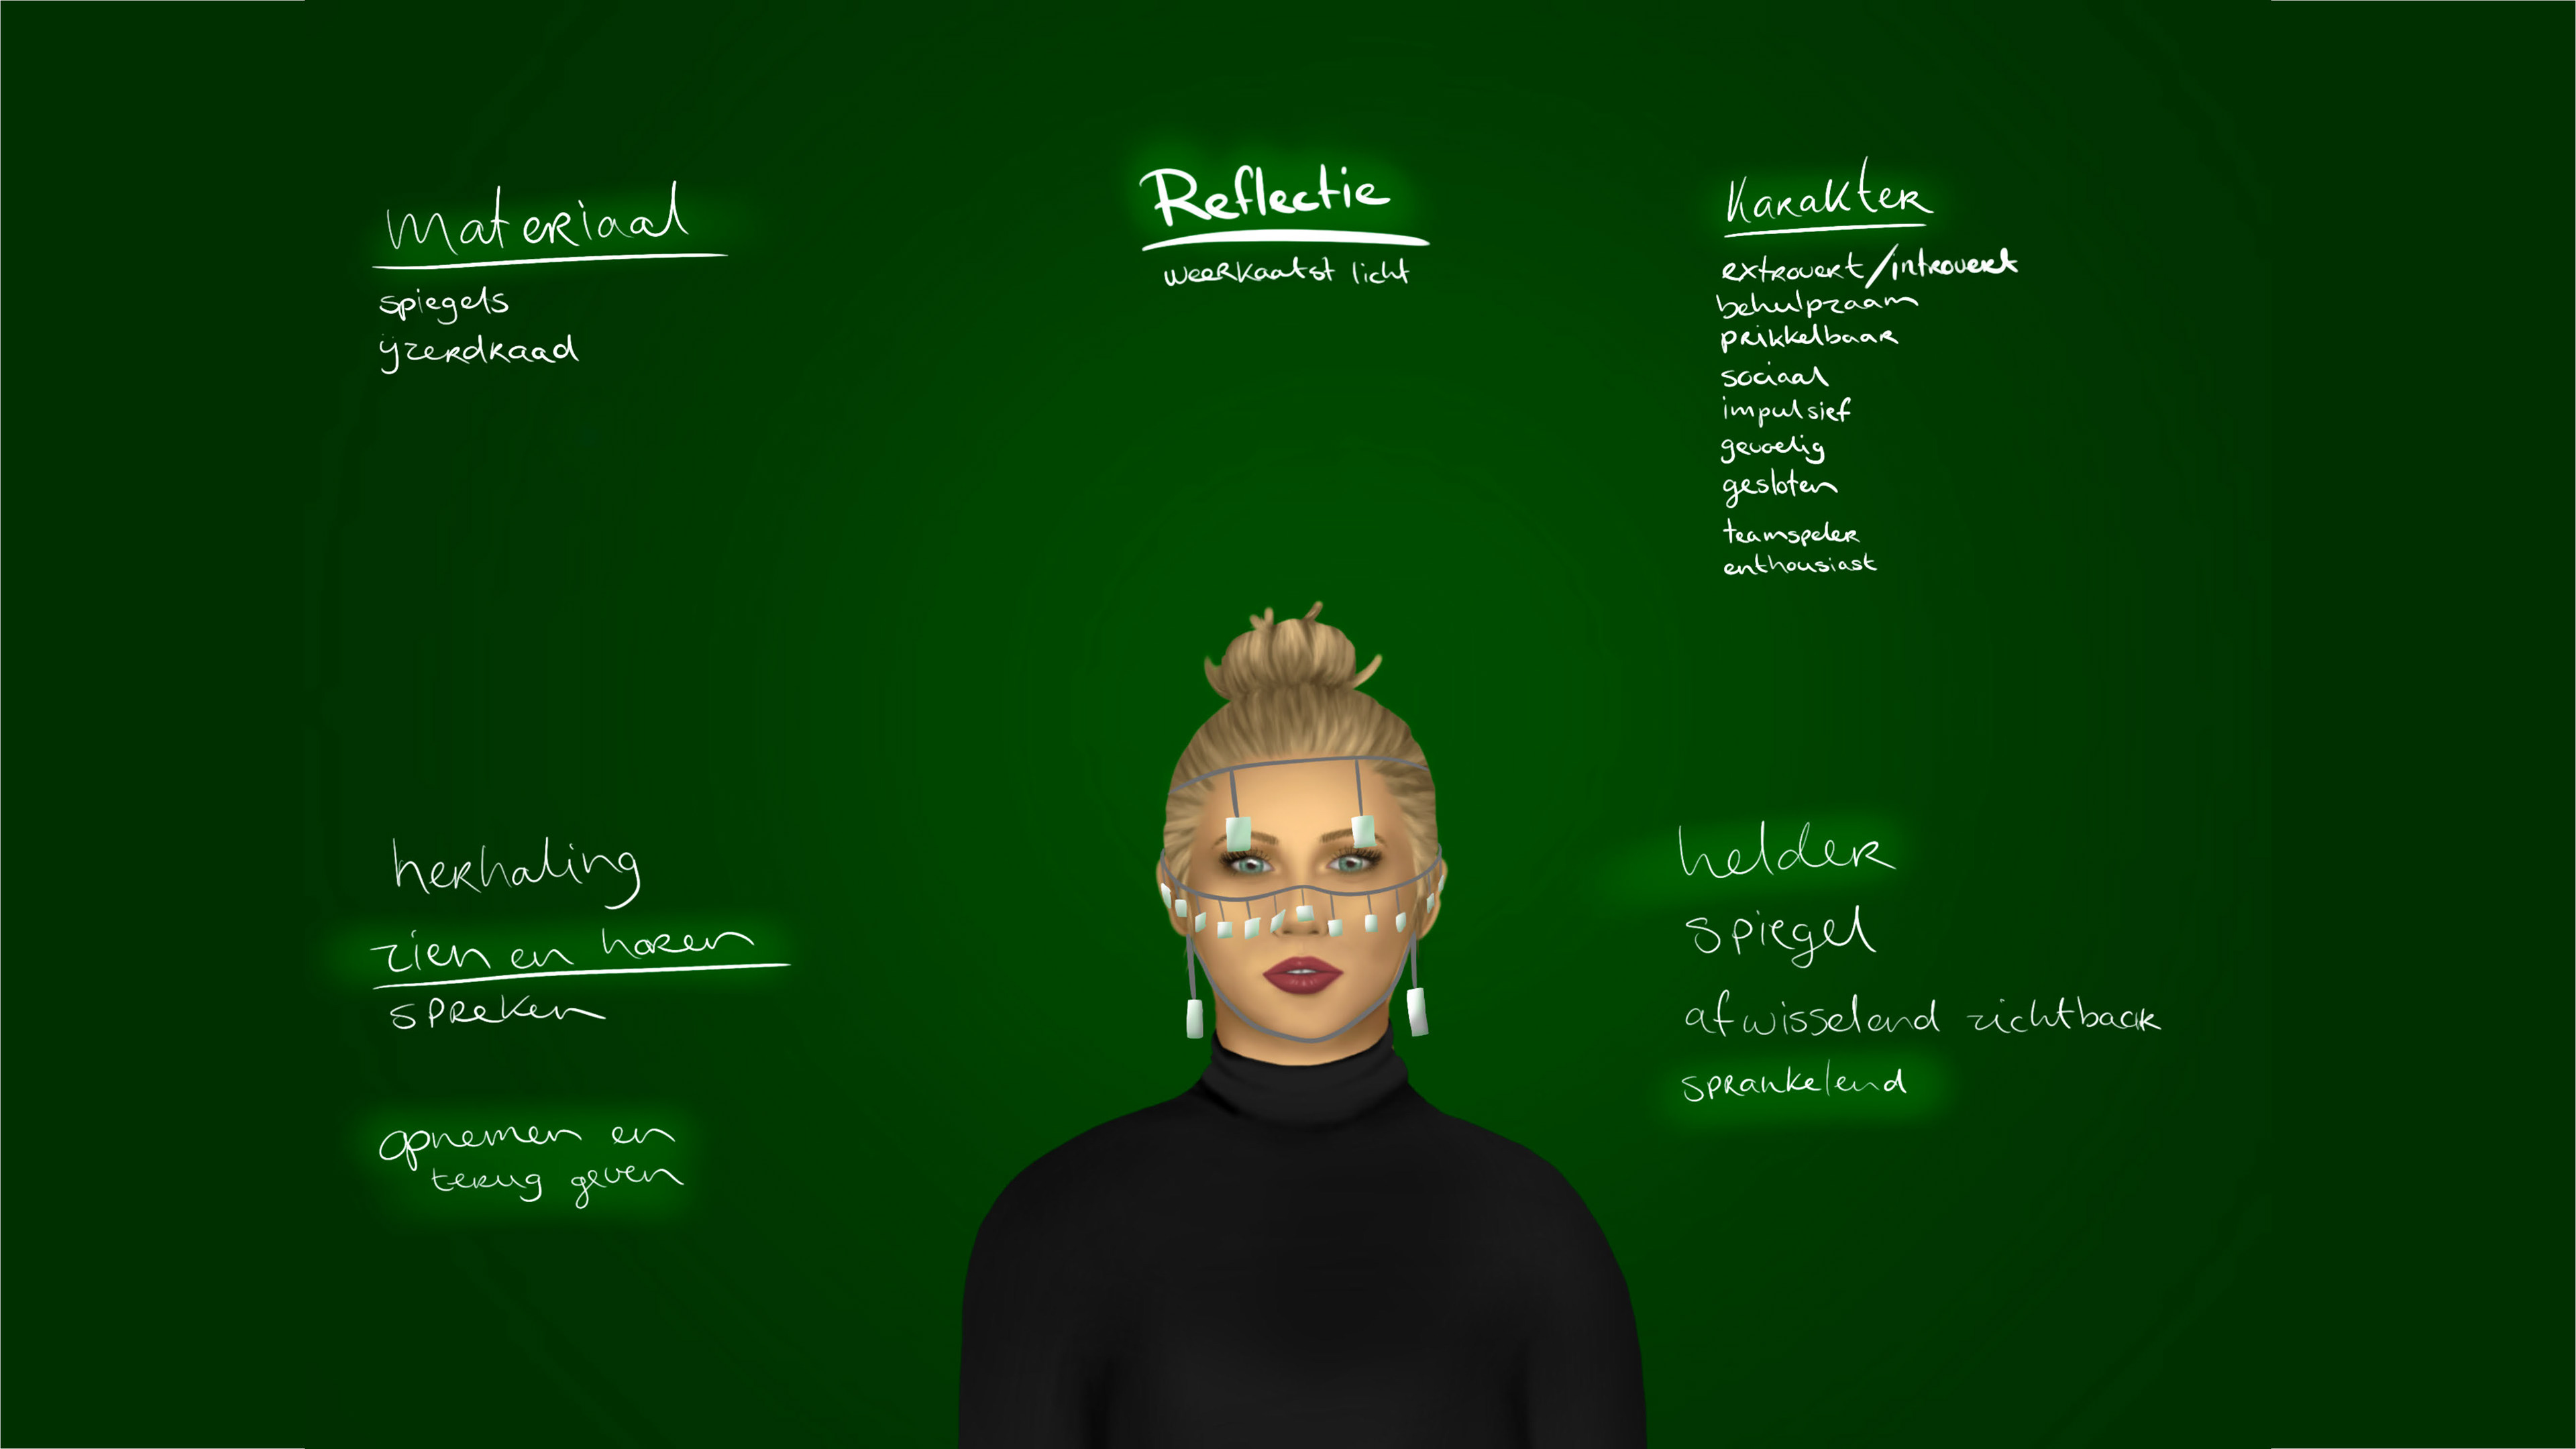 Materiaal
spiegels
ijzerdraad
Reflectie
weerkaatst licht
Karakter
extrovert/introvert
behulpzaam
prikkelbaar
sociaal
impulsief
gevoelig
gesloten
teamspeler
enthousiast
herhaling
zien en horen
spreken
opnemen en
terug geven
helder
spiegel
afwisselend zichtbaar
sprankelend